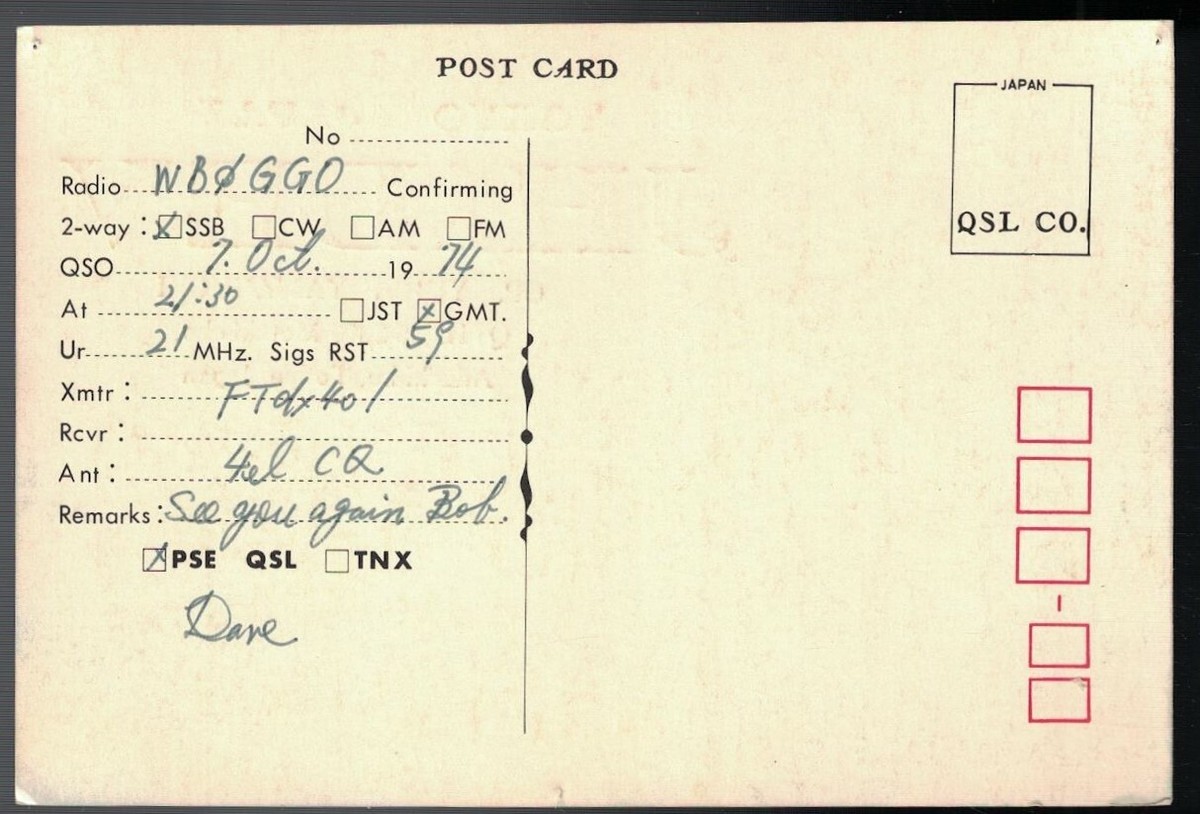 POST CARD
JAPAN
QSL CO.
No
Radio WBØGGO Confirming
2-way : SSB CW AM FM
QSO 7. Oct. 19 74
At 21:30 JST GMT.
Ur 21 MHz. Sigs RST 59
Xmtr : FTdx401
Rcvr :
Ant : 4el CQ
Remarks : See you again Bob.
PSE QSL TNX
Dave